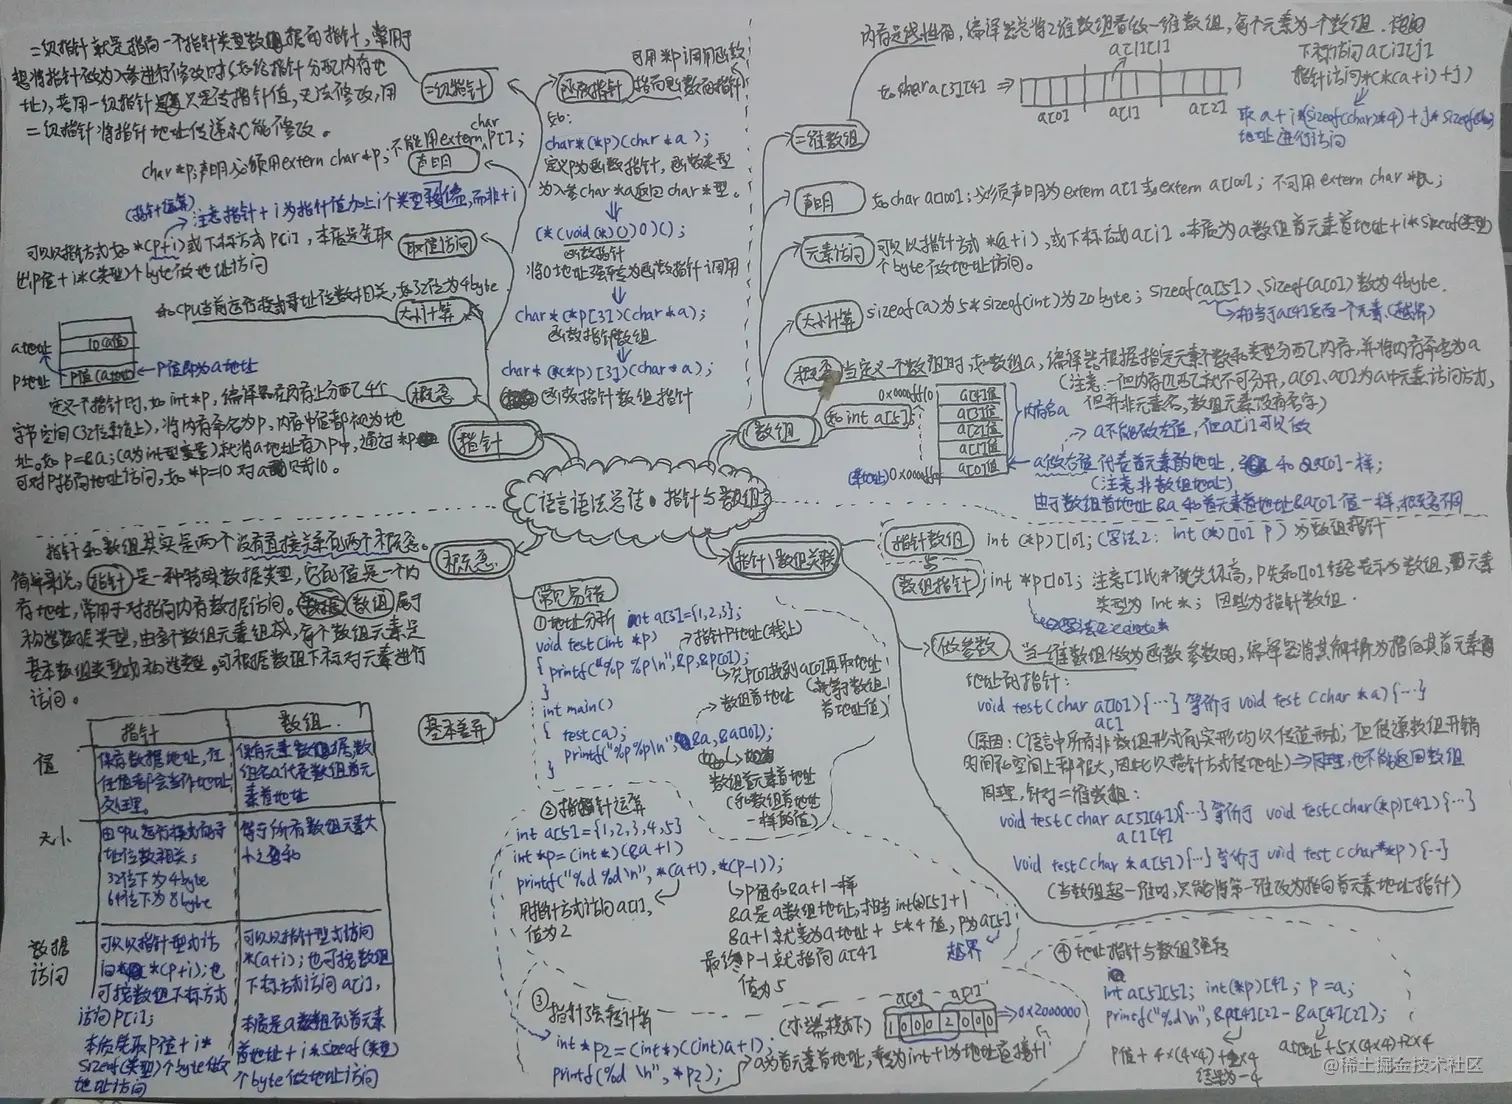 二级指针就是指向一个指针类型数据的指针,常用于
想将指针做为入参进行修改时(如给指针分配内存地
址),若用一级指针只是传指针值,无法修改,用
二级指针将指针地址传递就能修改。
二级指针
char *p;声明必须用extern char *p;不能用extern char p[];
声明
(指针运算)
注意指针+i为指针值加上i个类型值,而非+i
可以以指针方式如*(p+i)或下标方式p[i],本质是先取
出p值+i*(类型)个byte做地址访问
取值访问
和CPU当前运行模式寻址位数相关,如32位为4byte
大小计算
a地址
10(a值)
p地址
p值(a地址)
p值即为a地址
概念
定义一个指针时,如int *p,编译器在内存上分配了4个
字节空间(32位系统上),将内存命名为p,内存中值都视为地
址。如p=&a;(a为int型变量)就将a地址存入p中,通过*p
可对p指向地址访问,如*p=10对a赋10。
指针
可用*p调用函数
函数指针
指向函数的指针
如:
char*(*p)(char *a);
定义p为函数指针,函数类型
为入参char *a返回char *型。
(*(void(*)())0)();
函数指针
将0地址强转为函数指针调用
char*(*p[3])(char *a);
函数指针数组
char*(*(*p)[3])(char *a);
函数指针数组指针
内存是线性的,编译器总将2维数组看做一维数组,每个元素为一个数组.
二维数组
如char a[3][4]
a[1][1]
a[0]
a[1]
a[2]
下标访问a[i][j]
指针访问*(*(a+i)+j)
取a+i*(sizeof(char)*4)+j*sizeof(char)
地址进行访问
声明
如char a[100];必须声明为extern a[]或extern a[100];不可用extern char *a;
元素访问
可以以指针方式*(a+i),或下标方式a[i]。本质为a数组首元素首地址+i*sizeof(类型)
个byte做地址访问。
大小计算
sizeof(a)为5*sizeof(int)为20byte;sizeof(a[5])、sizeof(a[0])数为4byte.
相当于a[4]后面一个元素(越界)
概念
当定义一个数组时,如数组a,编译器根据指定元素个数和类型分配了内存,并将内存命名为a
(注意:一但内存匹配就不可分开,a[0]、a[1]为a中元素访问方式,
但并非元素名,数组元素没有名字)
数组
如int a[5];
0x0000ff10
a[4]值
a[3]值
a[2]值
a[1]值
a[0]值
内存名a
(首地址)0x0000ff
a不能做左值,但a[i]可以做
a做右值代表首元素的地址,和&a[0]一样;
(注意非数组地址)
由于数组首地址&a和首元素首地址&a[0]值一样,概念不同
C语言语法总结。指针与数组
概念
指针和数组其实是两个没有直接关系的两个概念。
简单来说,指针是一种特殊数据类型,它的值是一个内
存地址,常用于对指向内存数据访问。数组属于
构造数据类型,由多个数组元素组成,每个数组元素是
基本数组类型或构造类型。可根据数组下标对元素进行
访问。
基本差异
指针
数组
值
保存数据地址,任
任值都会当作地址
处理。
保存元素数据,数
组名a代表数组首元
素首地址
大小
由cpu运行模式的寻
址位数相关;
32位下为4byte
64位下为8byte
等于所有数组元素大
小之和
数据
访问
可以以指针型式访
问*(p+i);也
可按数组下标方式
访问p[i];
本质先取p值+i*
sizeof(类型)个byte做
地址访问
可以以指针型式访问
*(a+i);也可按数组
下标方式访问a[i],
本质是a数组的首元素
首地址+i*sizeof(类型)
个byte做地址访问
常见易错
①地址分析 int a[3]={1,2,3};
void test(int *p)
指针p地址(栈上)
{ printf("%p %p\n",&p,&p[0]);
先p[0]找到a[0]再取地址
(就等于数组
首地址值)
}
int main()
数组首地址
{ test(a);
printf("%p %p\n",&a,&a[0]);
}
数组首元素首地址
(和数组首地址
一样的值)
②指针运算
int a[5]={1,2,3,4,5}
int *p=(int*)(&a+1)
printf("%d %d\n",*(a+1),*(p-1));
用指针方式访问a[1],
值为2
p值和&a+1一样
&a是a数组地址,相当int(*)[5]+1
&a+1就变为a地址+5*4值,p为a[5]
越界
最终p-1就指向a[4]
值为5
③指针强转计算
(小端模式下)
a[0]
a[1]
1 0 0 0 2 0 0 0
0x2000000
int *p2=(int*)((int)a+1);
a为首元素首地址,转为int+1为地址直接+1
printf("%d \n",*p2);
④地址指针与数组强转
int a[5][5]; int(*p)[4]; p=a;
printf("%d\n",&p[4][2]-&a[4][2]);
p值+4*(4*4)+2*4
a地址+5*(4*4)+2*4
结果为-4
指针\数组关联
指针数组
与
数组指针
int (*p)[10];(写法2:int(*)[10] p)为数组指针
int *p[10];注意[]比*优先级高,p先和[10]结合表示为数组,元素
类型为int*;因此为指针数组.
做参数
当一维数组做为函数参数时,编译器将其解析为指向其首元素首
地址的指针:
void test(char a[10]){…}等价于void test(char *a){…}
a[]
(原因:C语言中所有非数组形式的实形均以传值形式,但传递数组开销
时间和空间上都很大,因此以指针方式传地址)⇒同理,也不能返回数组
同理,针对二维数组:
void test(char a[3][4]){…}等价于void test(char(*p)[4]){…}
a[][4]
void test(char *a[5]){…}等价于void test(char**p){…}
(当数组超一维时,只能将第一维改为指向首元素地址指针)
@稀土掘金技术社区